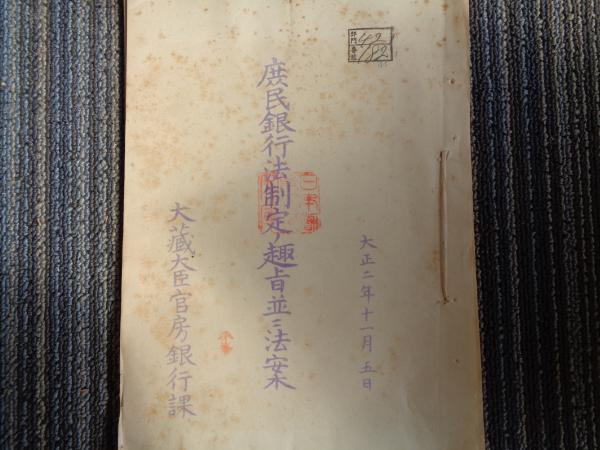 部門番號
42
182
大正二年十一月五日
庶民銀行法制定ノ趣旨並ニ法案
大藏大臣官房銀行課